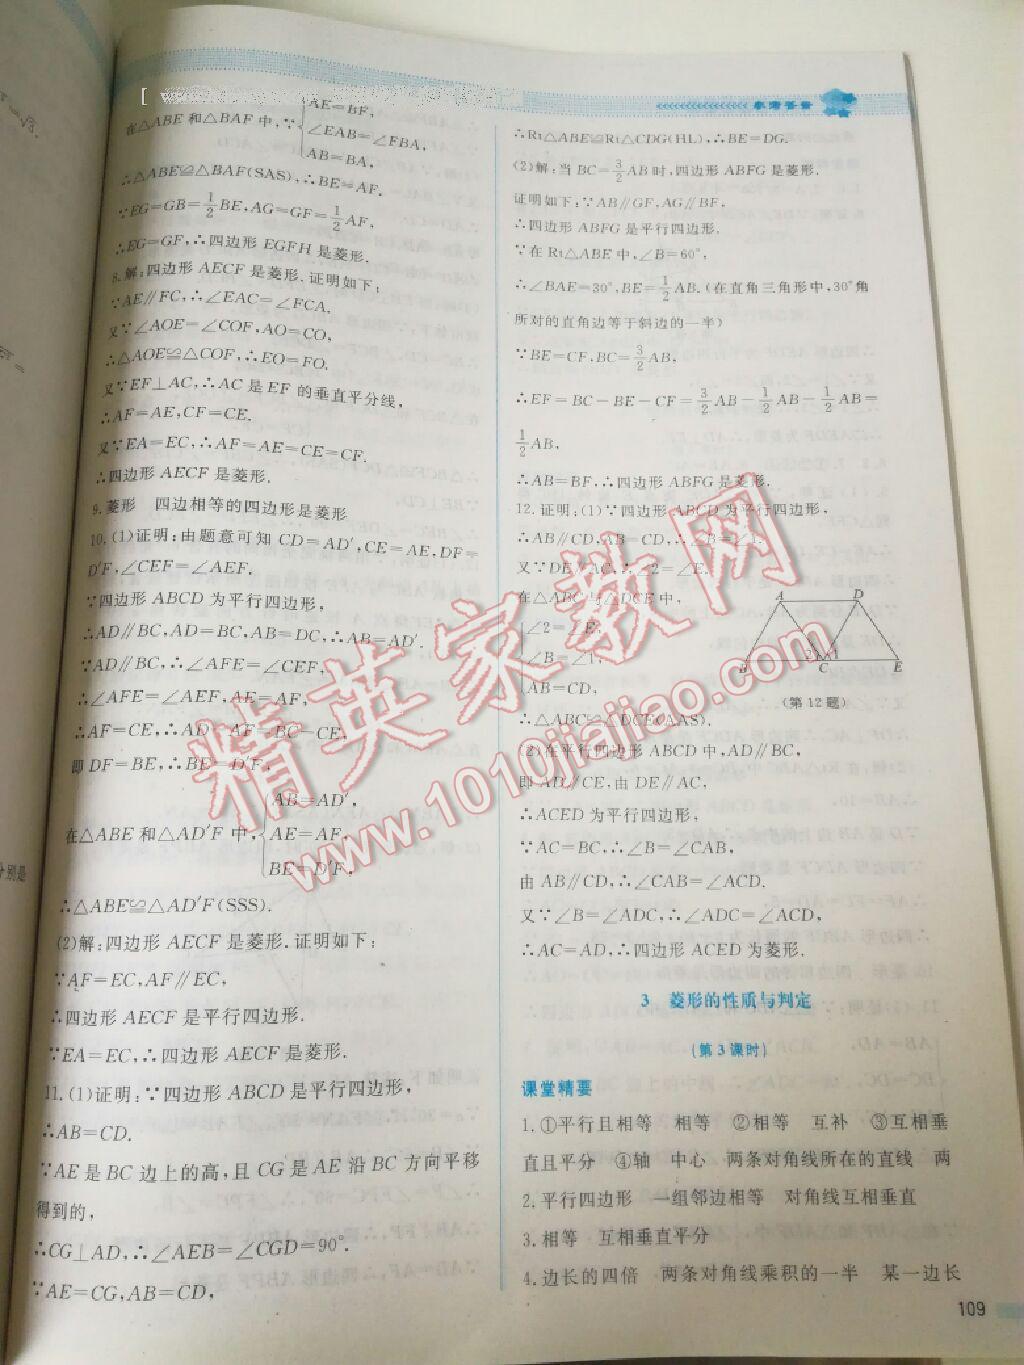 参考答案
AE=BF,
在△ABE 和△BAF 中,∵ ∠EAB=∠FBA,
AB=BA,
∴△ABE≌△BAF(SAS),∴BE=AF.
∵EG=GB=1/2BE,AG=GF=1/2AF,
∴EG=GF,∴四边形 EGFH 是菱形.
8.解:四边形 AECF 是菱形.证明如下:
∵AE∥FC,∴∠EAC=∠FCA.
又∵∠AOE=∠COF,AO=CO,
∴△AOE≌△COF,∴EO=FO.
又∵EF⊥AC,∴AC 是 EF 的垂直平分线,
∴AF=AE,CF=CE.
又∵EA=EC,∴AF=AE=CE=CF.
∴四边形 AECF 是菱形.
9.菱形 四边相等的四边形是菱形
10.(1)证明:由题意可知 CD=AD′,CE=AE,DF=
D′F,∠CEF=∠AEF.
∵四边形 ABCD 为平行四边形,
∴AD∥BC,AD=BC,AB=DC,∴AB=AD′.
∵AD∥BC,∴∠AFE=∠CEF,
∴∠AFE=∠AEF,AE=AF,
∴AF=CE,∴AD-AF=BC-CE,
即 DF=BE,∴BE=D′F,
AB=AD′,
在△ABE 和△AD′F 中, AE=AF,
BE=D′F,
∴△ABE≌△AD′F(SSS).
(2)解:四边形 AECF 是菱形.证明如下:
∵AF=EC,AF∥EC,
∴四边形 AECF 是平行四边形.
∵EA=EC,∴四边形 AECF 是菱形.
11.(1)证明:∵四边形 ABCD 是平行四边形,
∴AB=CD.
∵AE 是 BC 边上的高,且 CG 是 AE 沿 BC 方向平移
得到的,
∴CG⊥AD,∴∠AEB=∠CGD=90°.
∵AE=CG,AB=CD,
∴Rt△ABE≌Rt△CDG(HL),∴BE=DG.
(2)解:当 BC=3/2AB 时,四边形 ABFG 是菱形.
证明如下:∵AB∥GF,AG∥BF,
∴四边形 ABFG 是平行四边形.
∵在 Rt△ABE 中,∠B=60°,
∴∠BAE=30°,BE=1/2AB.(在直角三角形中,30°角
所对的直角边等于斜边的一半)
∵BE=CF,BC=3/2AB,
∴EF=BC-BE-CF=3/2AB-1/2AB-1/2AB=
1/2AB,
∴AB=BF,∴四边形 ABFG 是菱形.
12.证明:(1)∵四边形 ABCD 为平行四边形,
∴AB∥CD,AB=CD,∴∠B=∠1.
又∵DE∥AC,∴∠2=∠E.
在△ABC 与△DCE 中,
∠2=∠E,
∠B=∠1,
AB=CD,
A D
B 2 1 C E
(第 12 题)
∴△ABC≌△DCE(AAS).
(2)在平行四边形 ABCD 中,AD∥BC,
即 AD∥CE,由 DE∥AC,
∴ACED 为平行四边形,
∵AC=BC,∴∠B=∠CAB,
由 AB∥CD,∴∠CAB=∠ACD.
又∵∠B=∠ADC,∴∠ADC=∠ACD,
∴AC=AD,∴四边形 ACED 为菱形.
3 菱形的性质与判定
(第 3 课时)
课堂精要
1.①平行且相等 相等 ②相等 互补 ③互相垂
直且平分 ④轴 中心 两条对角线所在的直线 两
2.平行四边形 一组邻边相等 对角线互相垂直
3.相等 互相垂直平分
4.边长的四倍 两条对角线乘积的一半 某一边长
109
分别是
精英家教网
www.1010jiajiao.com